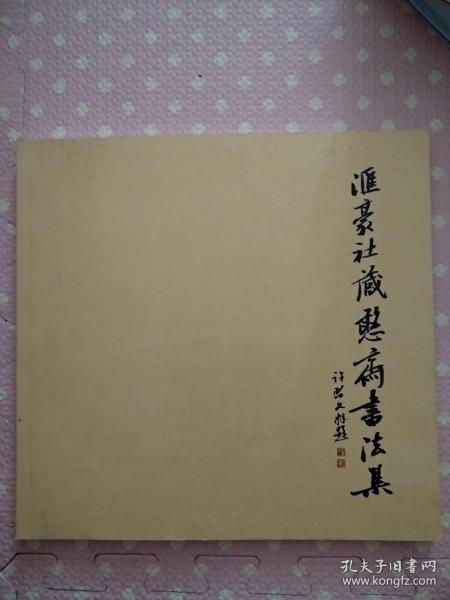 滙豪社藏憨齋書法集
孔夫子旧书网
www.kongfz.com